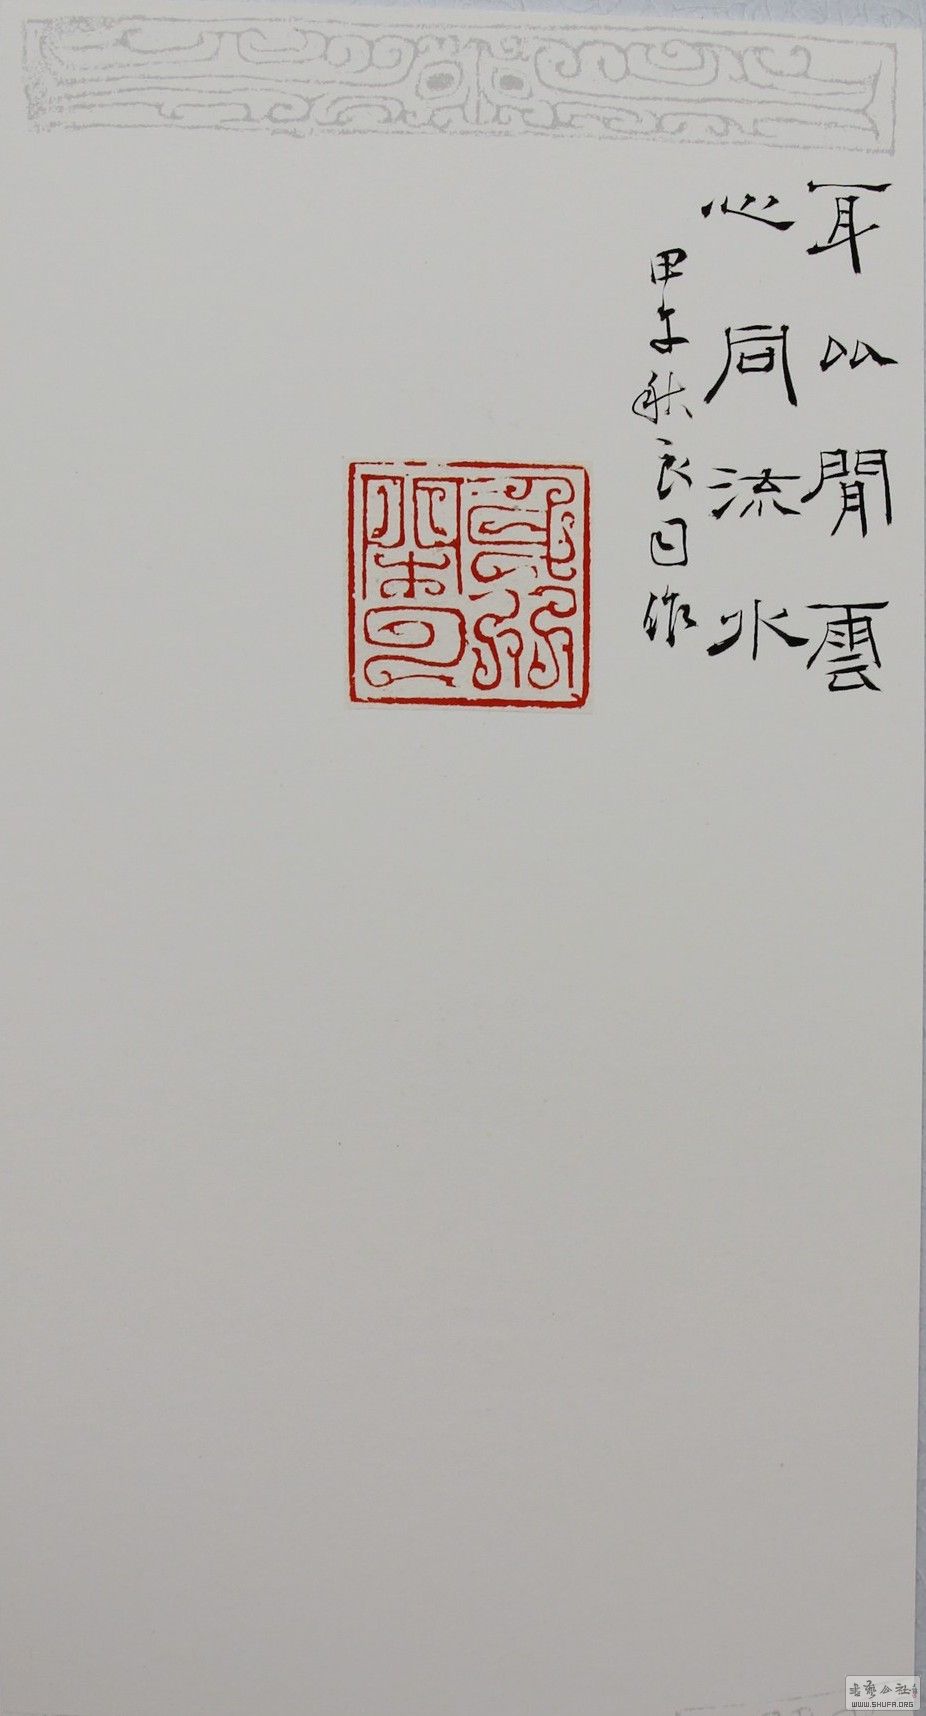 耳以閒雲
心同流水
甲午秋良日作
書藝公社
WWW.SHUFA.ORG